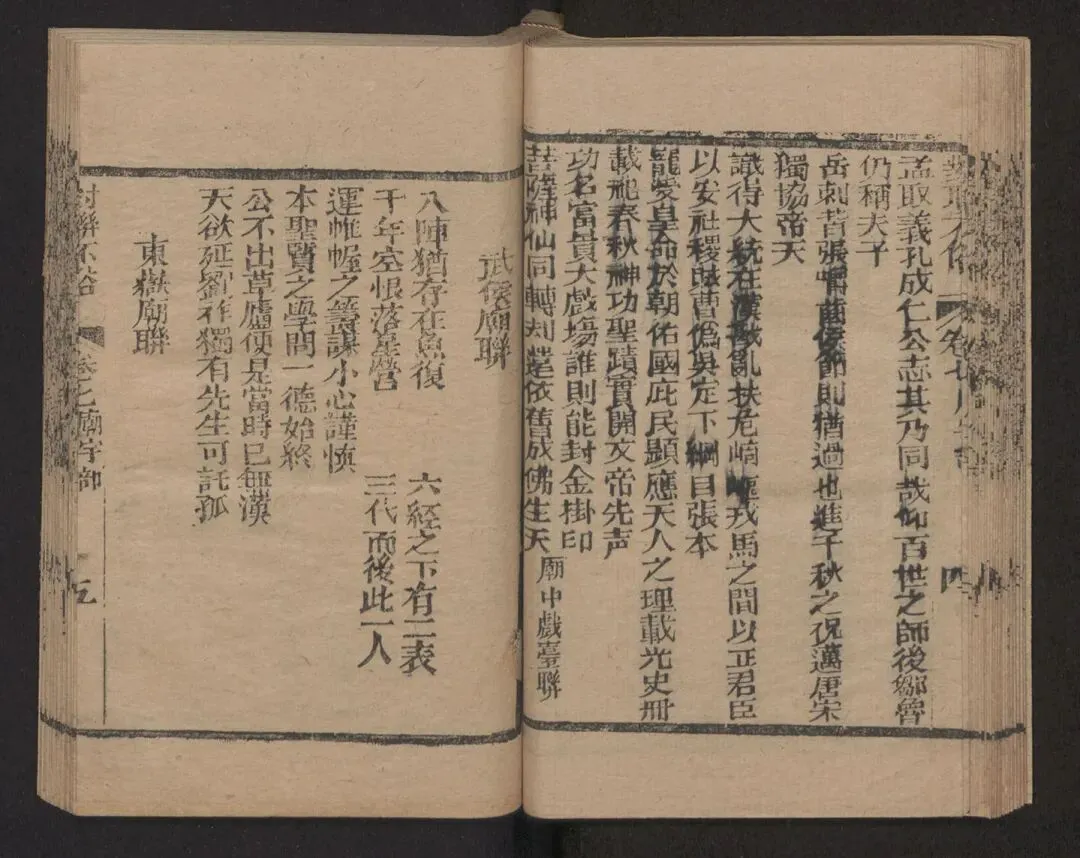 孟取義孔成仁公志其乃同哉仰百世之師後鄒魯
仍稱夫子
岳刺背張嚼齒侯節則猶過也進千秋之祝邁唐宋
獨協帝天
識得大統在漢戡亂扶危崎嶇戎馬之間以正君臣
以安社稷貶曹偽吳定下綱目張本
寵愛皇命於朝佑國庇民顯應天人之理載光史冊
載祀春秋神功聖蹟實開文帝先声
功名富貴大戲場誰則能封金掛印
菩薩神仙同轉刦 依舊成佛生天 廟中戲臺聯
武侯廟聯
八陣猶存在魚復 六経之下有二表
千年空恨落星營 三代而後此一人
運帷幄之籌謀小心謹慎
本聖賢之學問一德始終
公不出草廬便是當時已無漢
天欲延劉祚獨有先生可託孤
東嶽廟聯
對聯不俗 卷七廟宇部 五